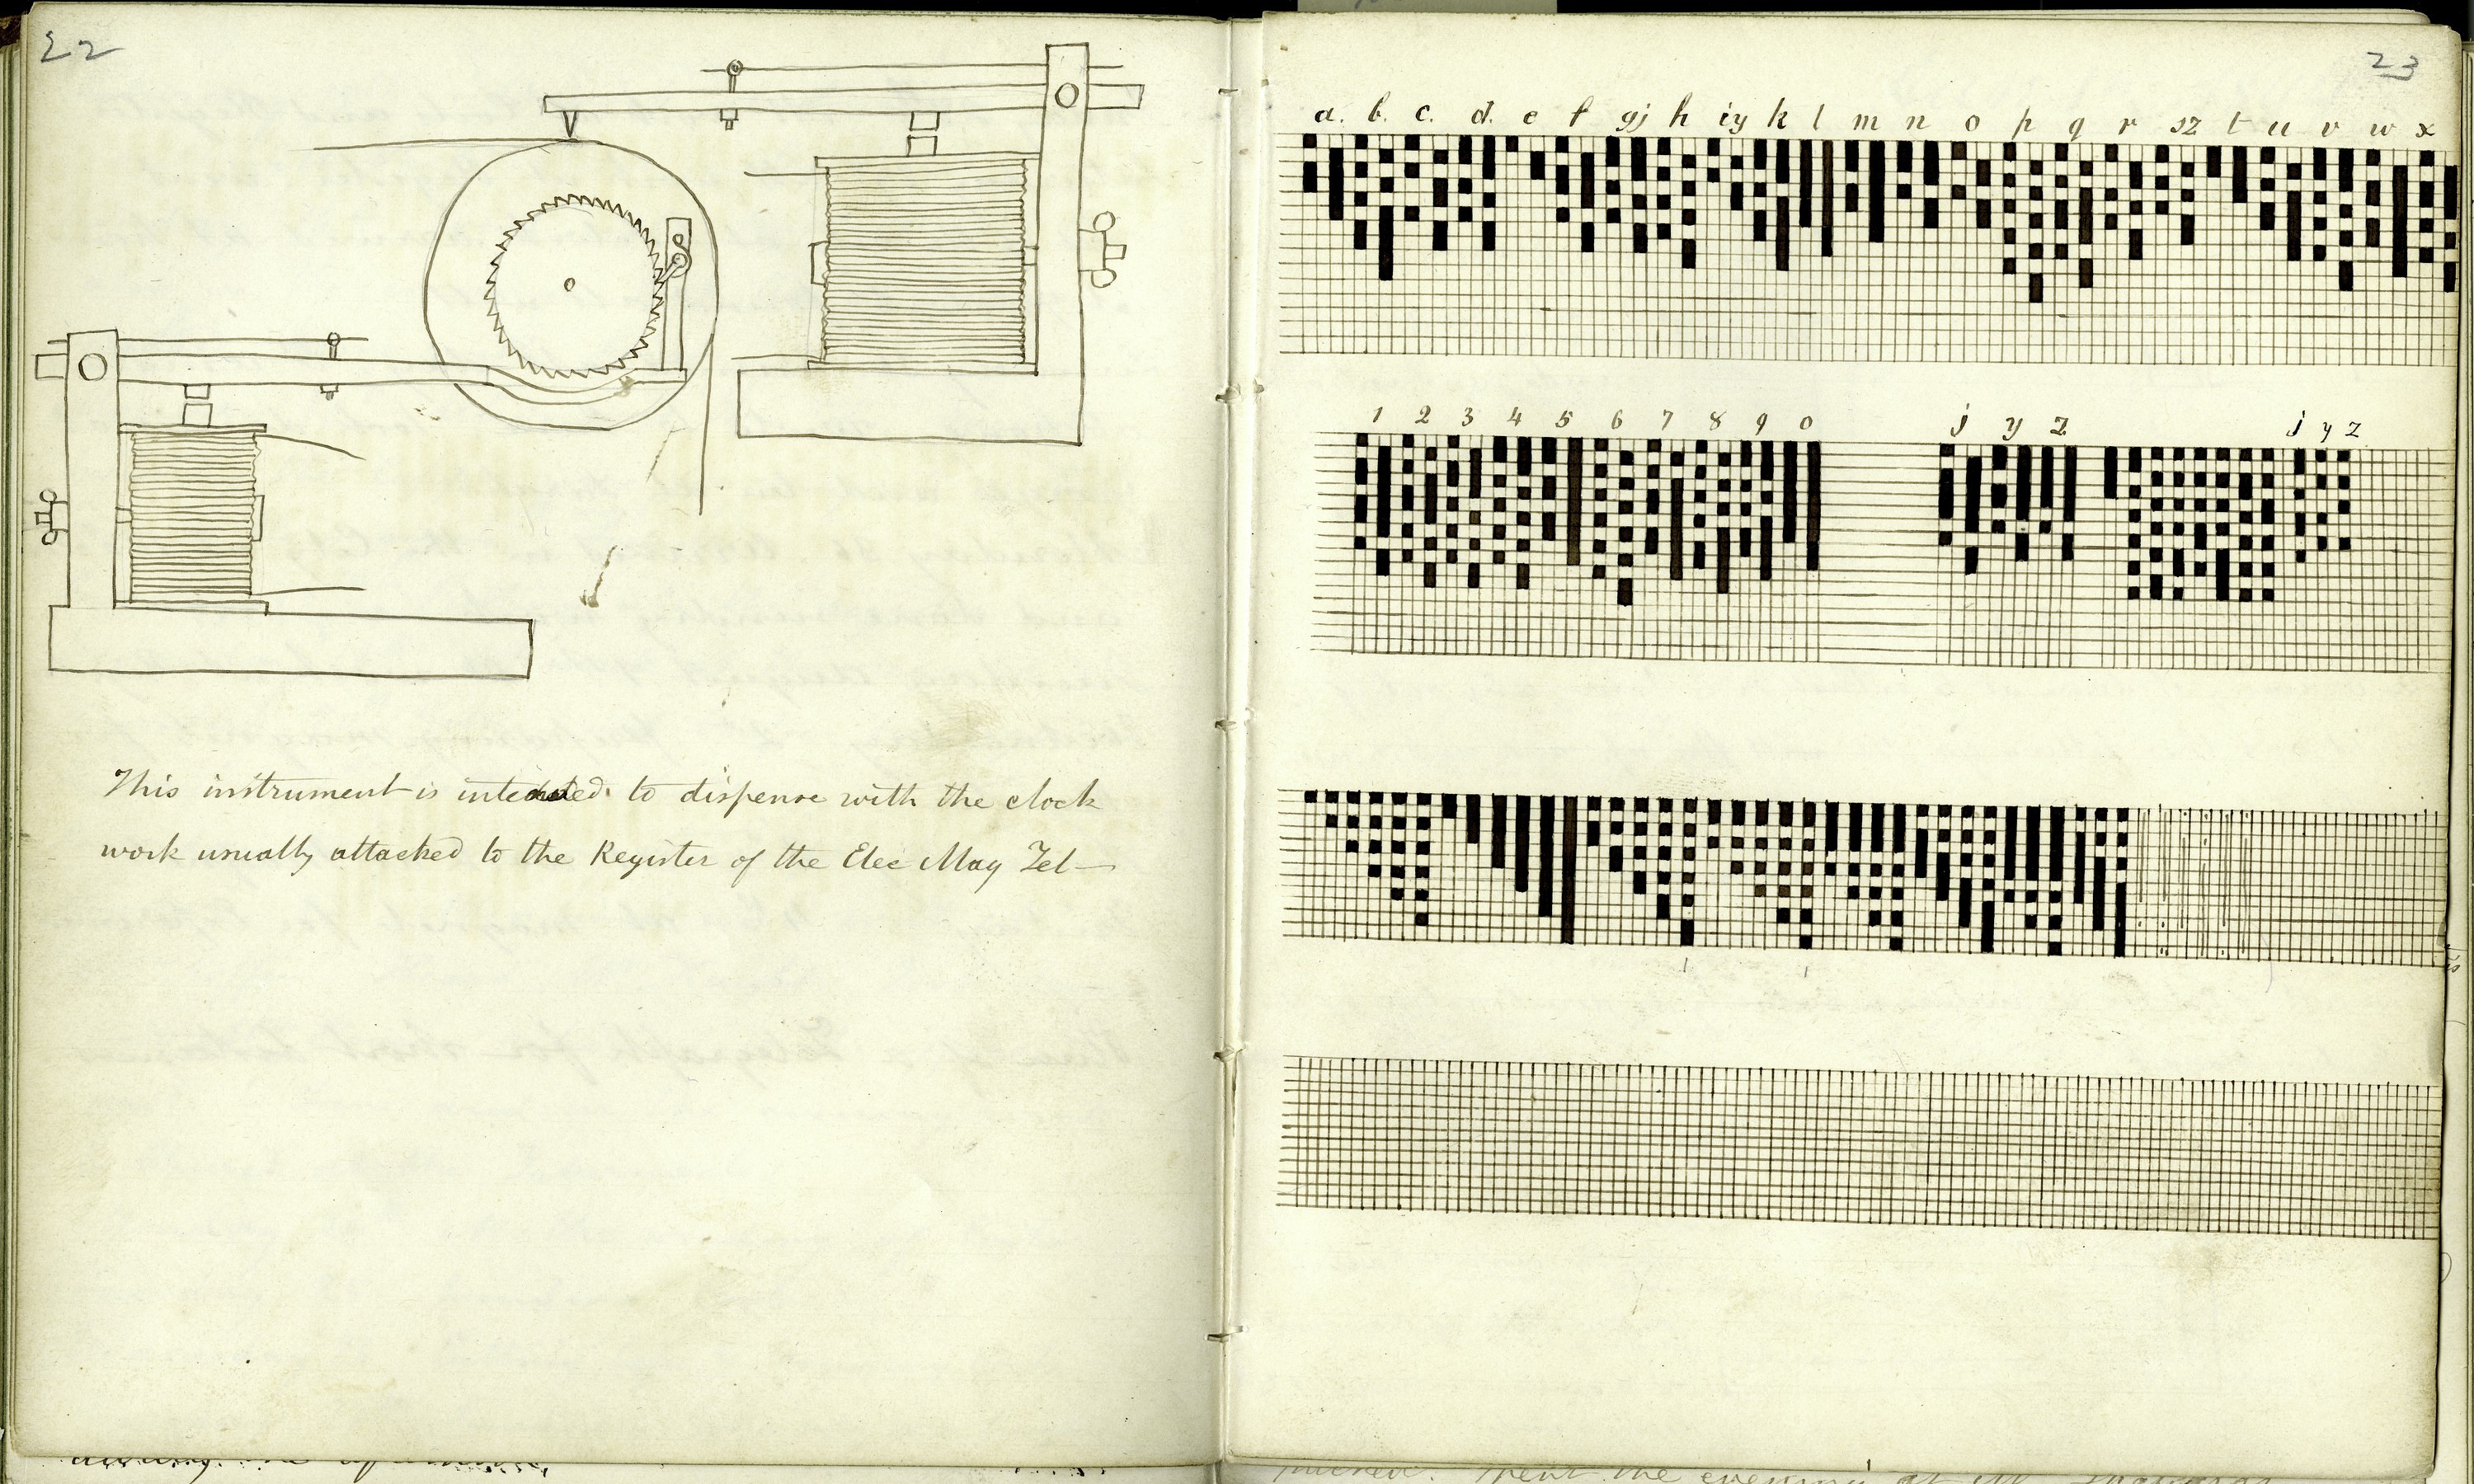 22
This instrument is intended to dispense with the clock
work usually attached to the Register of the Elec Mag Tel—
23
a. b. c. d. e f gj h iy k l m n o p q r sz t u v w x
1 2 3 4 5 6 7 8 9 0 j y z j y z